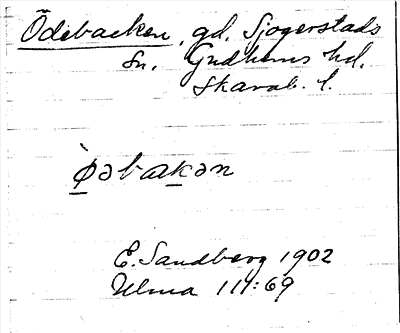 Ödebacken, gd. Sjogerstads
Sn. Gudhems hd.
Skarab. l.
Ø̀əbakən
E. Sandberg 1902
Ulma 111:69